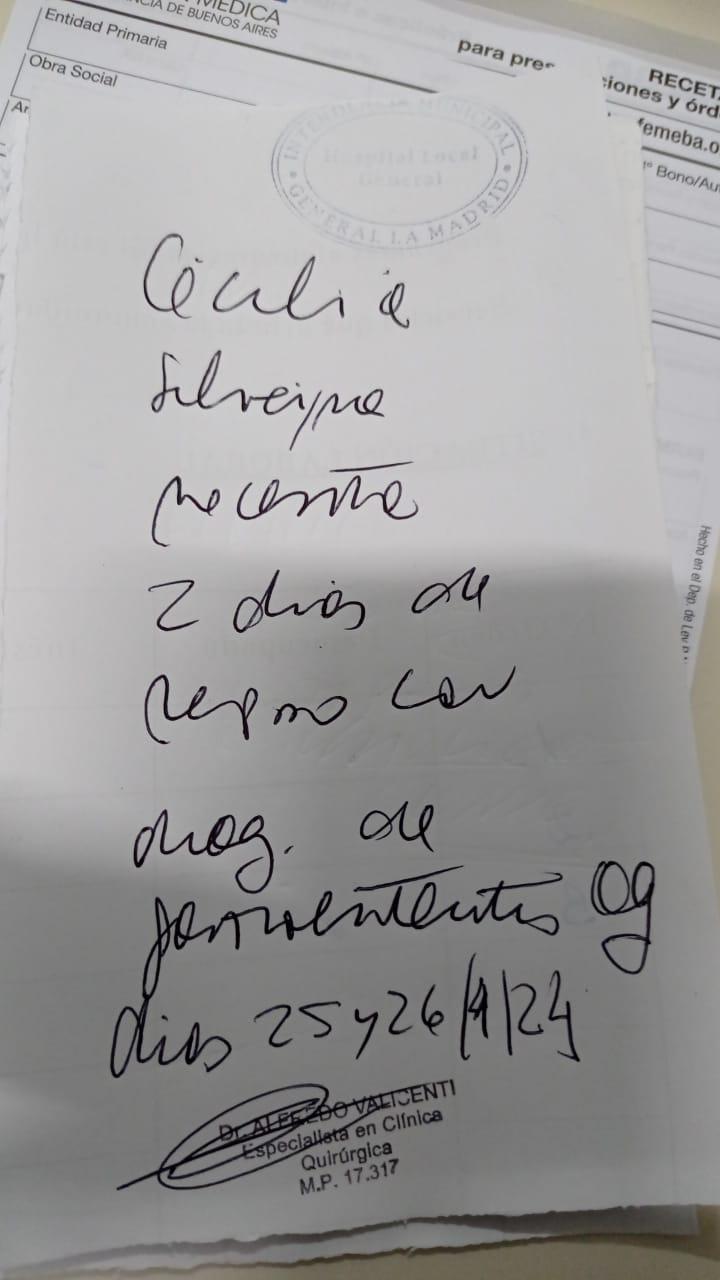 MEDICA
CIA DE BUENOS AIRES
Entidad Primaria
Obra Social
RECET
para pres
ciones y órd
femeba.o
Bono/Au
INTENDENCIA MUNICIPAL
Hospital Local
General
GENERAL LA MADRID
Cecilia
Silveyra
necesita
2 dias de
reposo con
diag. de
gastroenteritis ag
dias 25 y 26/4/24
Dr. ALFREDO VALICENTI
Especialista en Clínica
Quirúrgica
M.P. 17.317
Hecho en el Dep. de Ley n